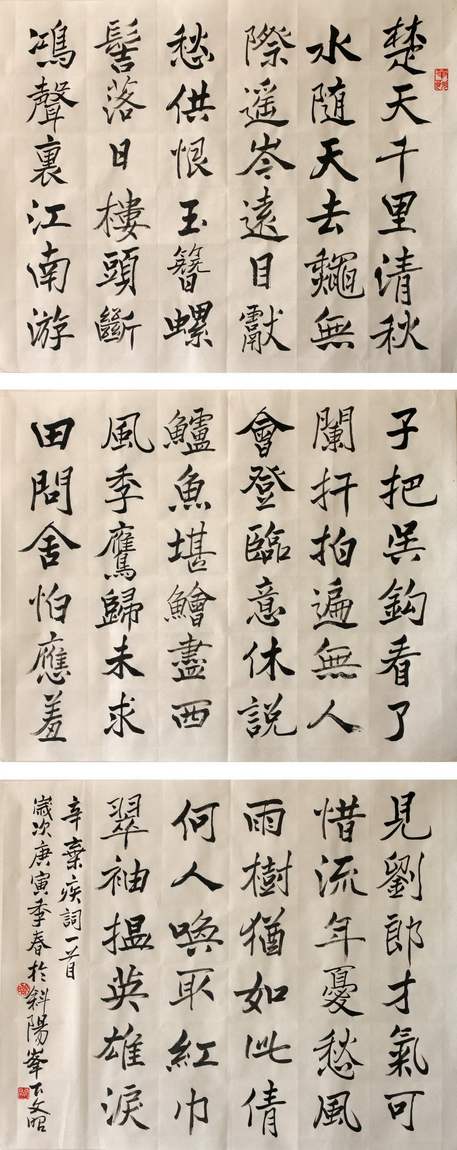 楚天千里清秋
水随天去龝無
際遥岑遠目獻
愁供恨玉簪螺
髻落日樓頭斷
鴻聲裏江南游
子把吴鈎看了
闌扞拍遍無人
會登臨意休説
鱸魚堪鱠盡西
風季鷹歸未求
田問舍怕應羞
見劉郎才氣可
惜流年憂愁風
雨樹猶如此倩
何人喚取紅巾
翠袖揾英雄淚
辛棄疾詞一首
歲次庚寅季春於斜陽峯下文昭